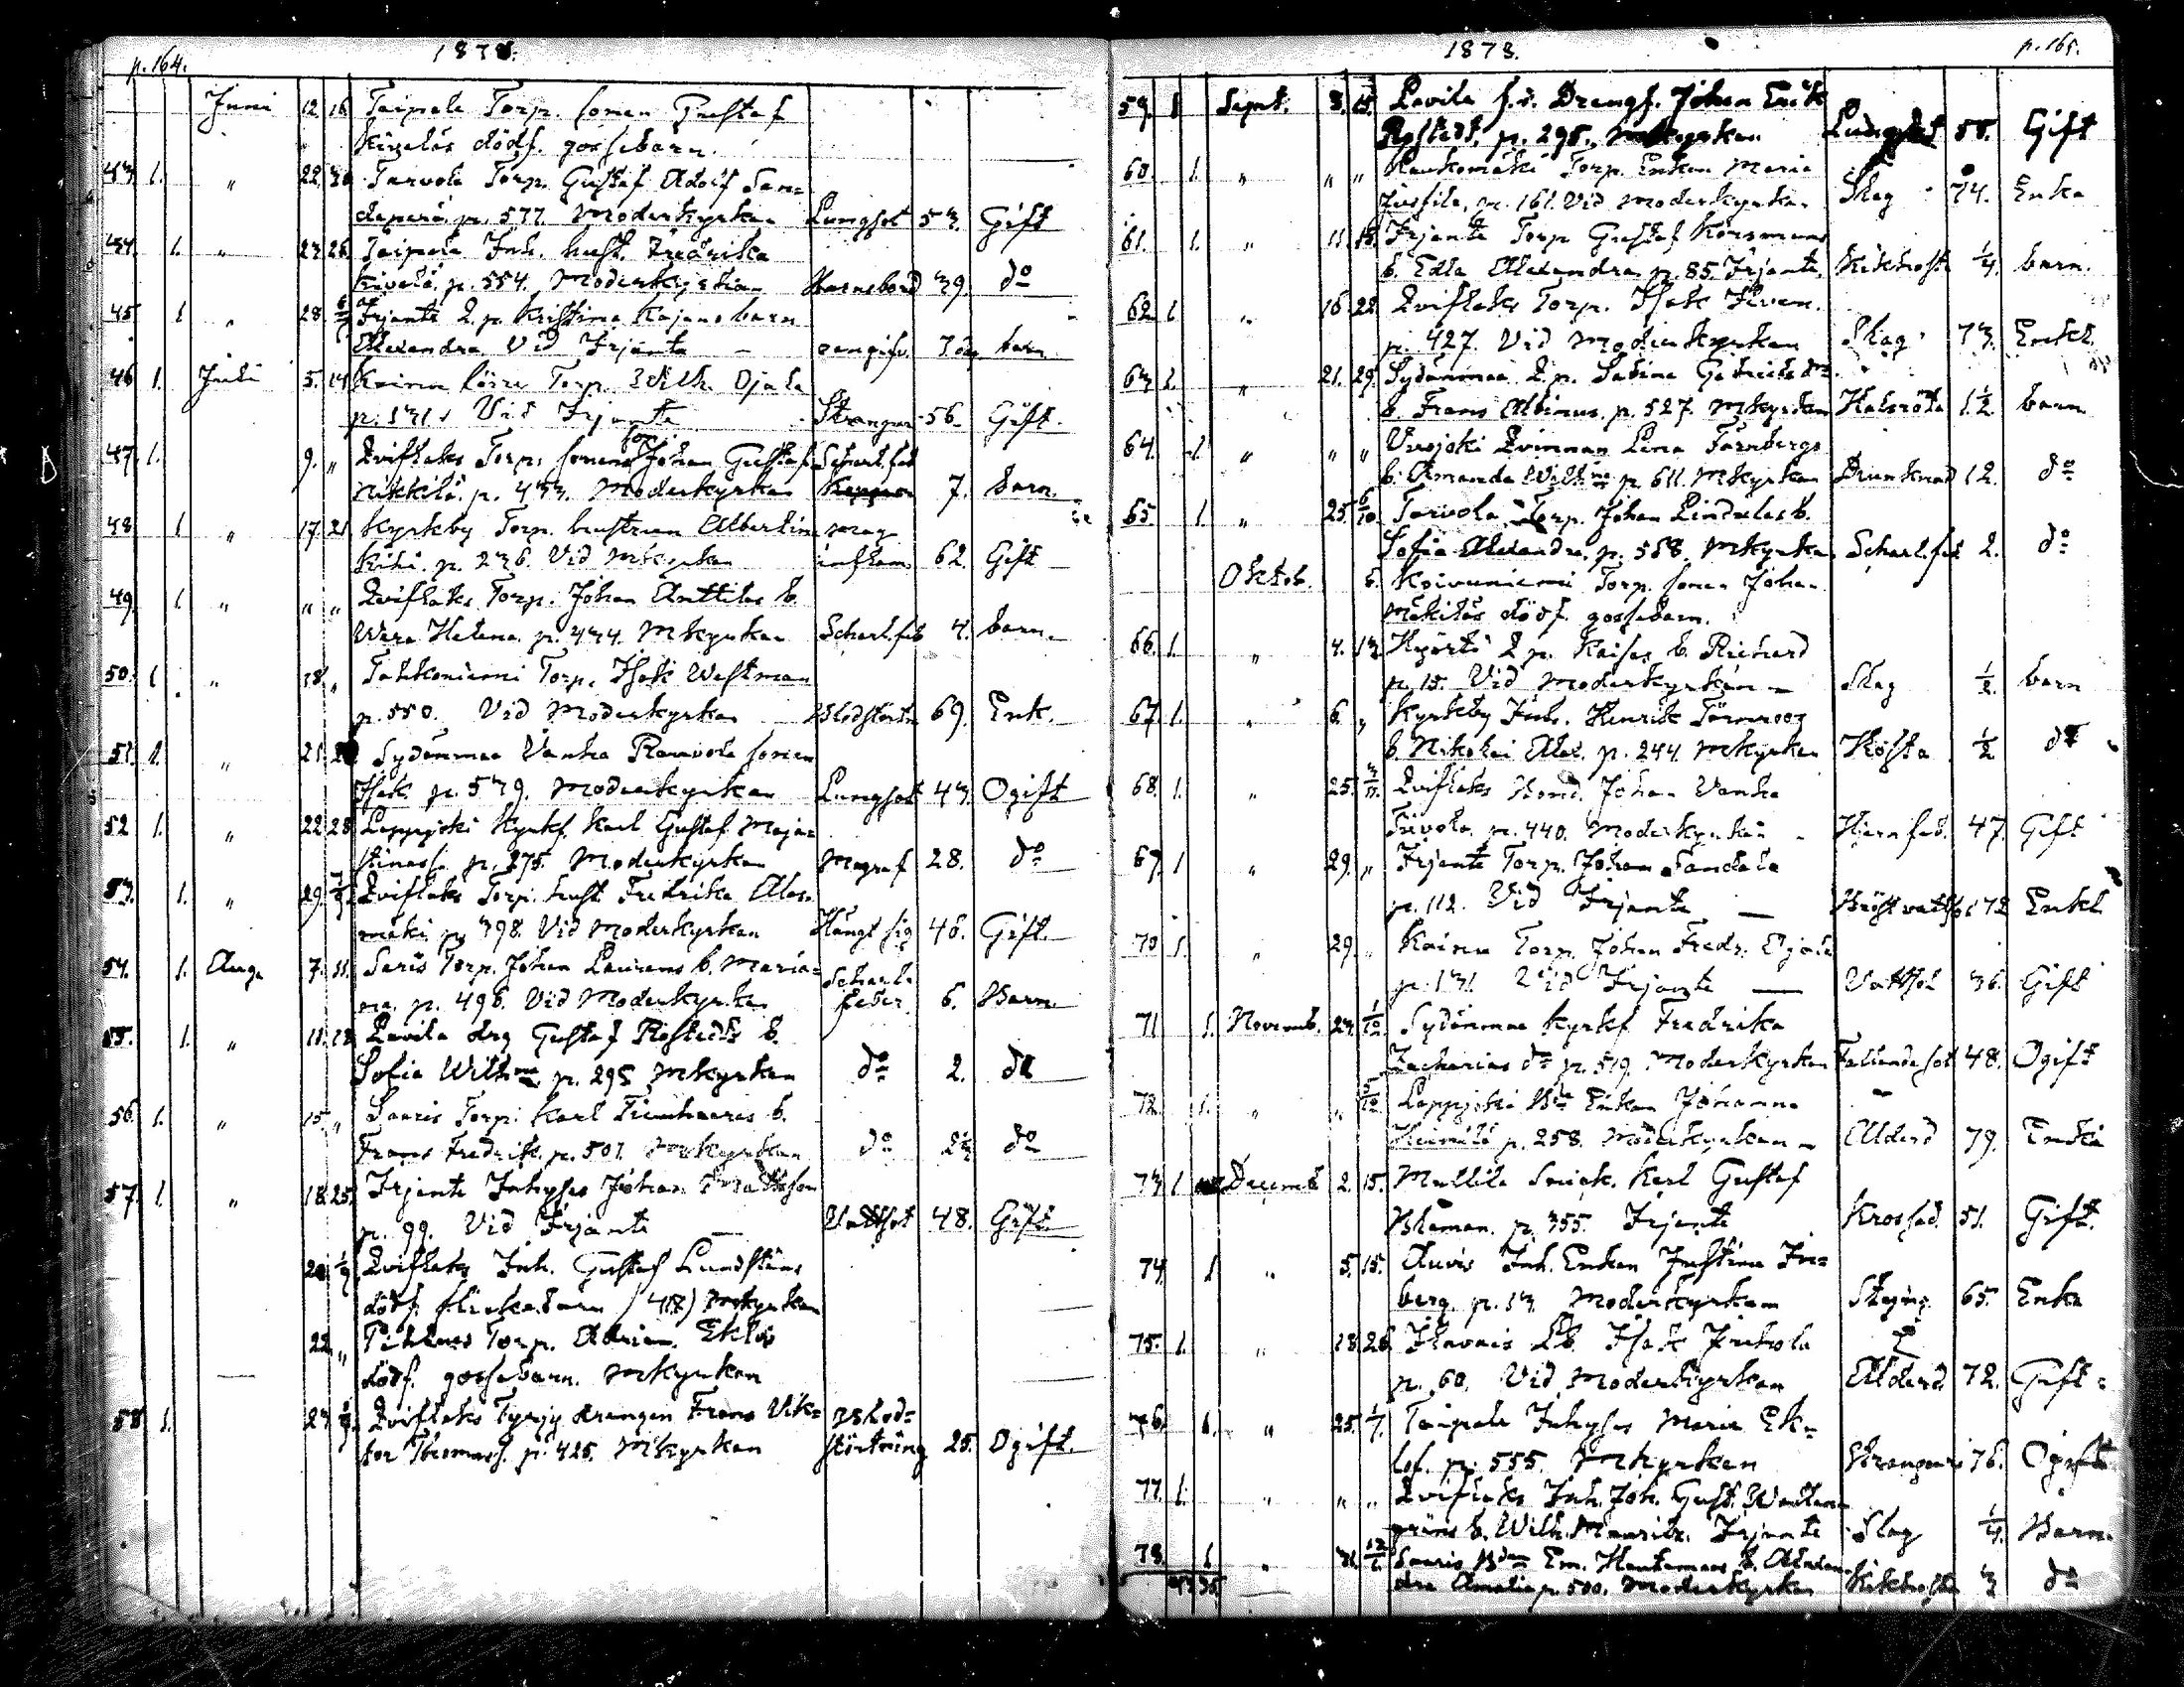 p. 164.
1878.
Juni 12 16 Taipale Torp. sonen Gustaf
Kivelas dödf. gossebarn.
43. 1. " 22. 30 Tarvola Torp. Gustaf Adolf San=
p. 577. Moderkyrkan Lungsot 53. Gift
44. 1. " 23 26 Taipale Inh. hust. Fredrika
Kivelä. p. 554. Moderkyrkan Barnsbörd 39. do
45 1 " 28. Irjante Q. p. Kristina Kajans barn
Alexandra Vid Irjante – oangifv. 7 dag barn
46 1. Juli 5. 14 Kainu Torp. Wilh. Ojala
p. 131. Vid Irjante Strangur 56. Gift.
47. 1. 9. " Qvistlaks Torp. sonens son Johan Gustaf Scharl.feb
Nikkilä. p. 433. Moderkyrkan 7. barn.
48 1 " 17. 21 Kyrkby Torp. hustrun Albertin mag
Kihi. p. 236. Vid Mkyrkan inflam 62. Gift
49. 1. " " " Qvistlaks Torp. Johan Anttilas b.
Wera Helena. p. 434. Mkyrkan Scharl.feb 4. barn
50. 1 " 18. " Tahkoniemi Torp. Isak Westman
p. 550. Vid Moderkyrkan Blodstörtn 69. Enk.
51. 1. " 21. Sydänmaa Vanha Rauvola sonen
Isak p. 579. Moderkyrkan Lungsot 43. Ogift
52 1. " 22 28 Lappijoki Kyrkf. Karl Gustaf Maja=
stinass. p. 275. Moderkyrkan Magref 28. do
53. 1. " 29 Qvistlaks Torp. hust Fredrika Ala=
mäki p. 398. Vid Moderkyrkan Hängt sig 46. Gift.
54. 1. Aug. 7. 11. Saris Torp. Johan Laurens b. Maria=
na. p. 496. Vid Moderkyrkan Scharl. feber 6. Barn
55. 1. " 11. 18 Lavila drg Gustaf Rostedts b.
Sofia Wilhma p. 295 Mkyrkan do 2. do
56. 1. " 15. " Sauris Torp. Karl Tiemhaaras b.
Frans Fredrik. p. 501. Mkyrkan do do
57. 1. " 18. 25. Irjante Inhyses Johan Mattsson
p. 99. Vid Irjante – Vattsot 48. Gift
20 1/9 Qvistlaks Inh. Gustaf Lundsténs
dödf. flickebarn (418) Mkyrkan
22. " Pihlaus Torp. Adrian Eklös
dödf. gossebarn. Mkyrkan
58 1. 23. Qvistlaks Tyrjy drengen Frans Vik=
tor Thomass. p. 425. Mkyrkan Blod= störtning 25. Ogift.
1878.
p. 165.
59. 1 Sept. 8. 15. Lavila f.d. Drengf. Johan Erik
Rostedt. p. 295. Mkyrkan Lungsot 58. Gift
60. 1. " " " Raukomäki Torp. Enkan Maria
Jussila, p. 161. Vid Moderkyrkan Slag 74. Enka
61. 1. " 11. 15. Irjante Torp Gustaf Korsmans
b. Edla Alexandra. p. 85. Irjante. Kikhosta 1/4. barn.
62. 1 " 16. 22. Qvistlaks Torp. Isak Iivan.
p. 427. Vid Moderkyrkan Slag 73. Enkl.
63 1. " 21. 29. Sydänmaa Q. p. Sabina Gabrielsdr
b. Frans Albinus. p. 527. Mkyrkan Halsröta 1 1/2. barn
64. 1. " " " Vuojoki Qvinnan Lina Törnbergs
b. Amanda Wilhma p. 611. Mkyrkan Drunknad 12. do
65 1. " 25. 6/10 Tarvola Torp. Johan Lindalas b.
Sofia Alexandra. p. 588. Mkyrka. Scharl.feb 2. do
Oktob. 6. Koivuniemi Torp. sonen Johan
Mäkiläs dödf. gossebarn.
66. 1. " 4. 13. Hyörti Q p. Kaisas b. Richard
p. 15. Vid Moderkyrkan – Slag 1/2. barn
67. 1. " 6. " Kyrkby Inh. Henrik Törnroos
b. Nikolai Alex. p. 244. Mkyrkan Hosta 1/2 do
68. 1. " 25. 3/11. Qvistlaks Bond. Johan Vanha
Tuvola. p. 440. Moderkyrkan Hjernfeb. 47. Gift
69. 1 " 29. " Irjante Torp. Johan Sandala
p. 112. Vid Irjante – Bröstvattsot 72 Enkl.
70 1. " 29. " Kainu Torp. Johan Fredr. Ojala
p. 131. Vid Irjante – Vattsot 36. Gift
71 1. Novemb. 24. 1/12 Sydänmaa Kyrkf. Fredrika
Zacharias dr p. 519. Moderkyrkan Fallandesot 48. Ogift
72. 1. " " 5/12 Lappijoki Enkan Johanna
Heinilä p. 258. Moderkyrkan – Ålderd 79. Enka
73 1 Decemb 2. 15. Mullila Smek. Karl Gustaf
Blåman. p. 355. Irjante Krossad. 51. Gift.
74. 1 " 5. 15. Auvis Inh. Enkan Justina Fri=
berg. p. 13. Moderkyrkan Styng 65. Enka
75. 1. " 18 26 Ilavais Lb. Isak Juhola
p. 60. Vid Moderkyrkan Ålderd. 72. Gift.
76. 1. " 25. 1/1. Taipale Inhyses Maria Ek=
lof. p. 555. Mkyrkan Strangur 76. Ogift
77. 1. " " " Qvistlaks Inh. Joh. Gust.
b. Wilh. Mauritz. Irjante Slag 1/4. Barn.
78. 1 " 31. 12/1. Sauris Em. Hautamaas b. Alexan
dra Amalia p. 500. Moderkyrkan Kikhosta do
43 35